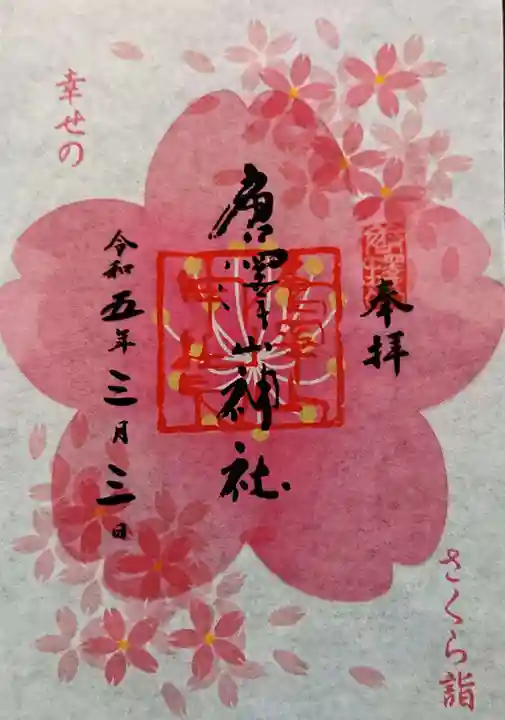 幸せの
奉拝
唐澤山神社
令和五年三月三日
さくら詣